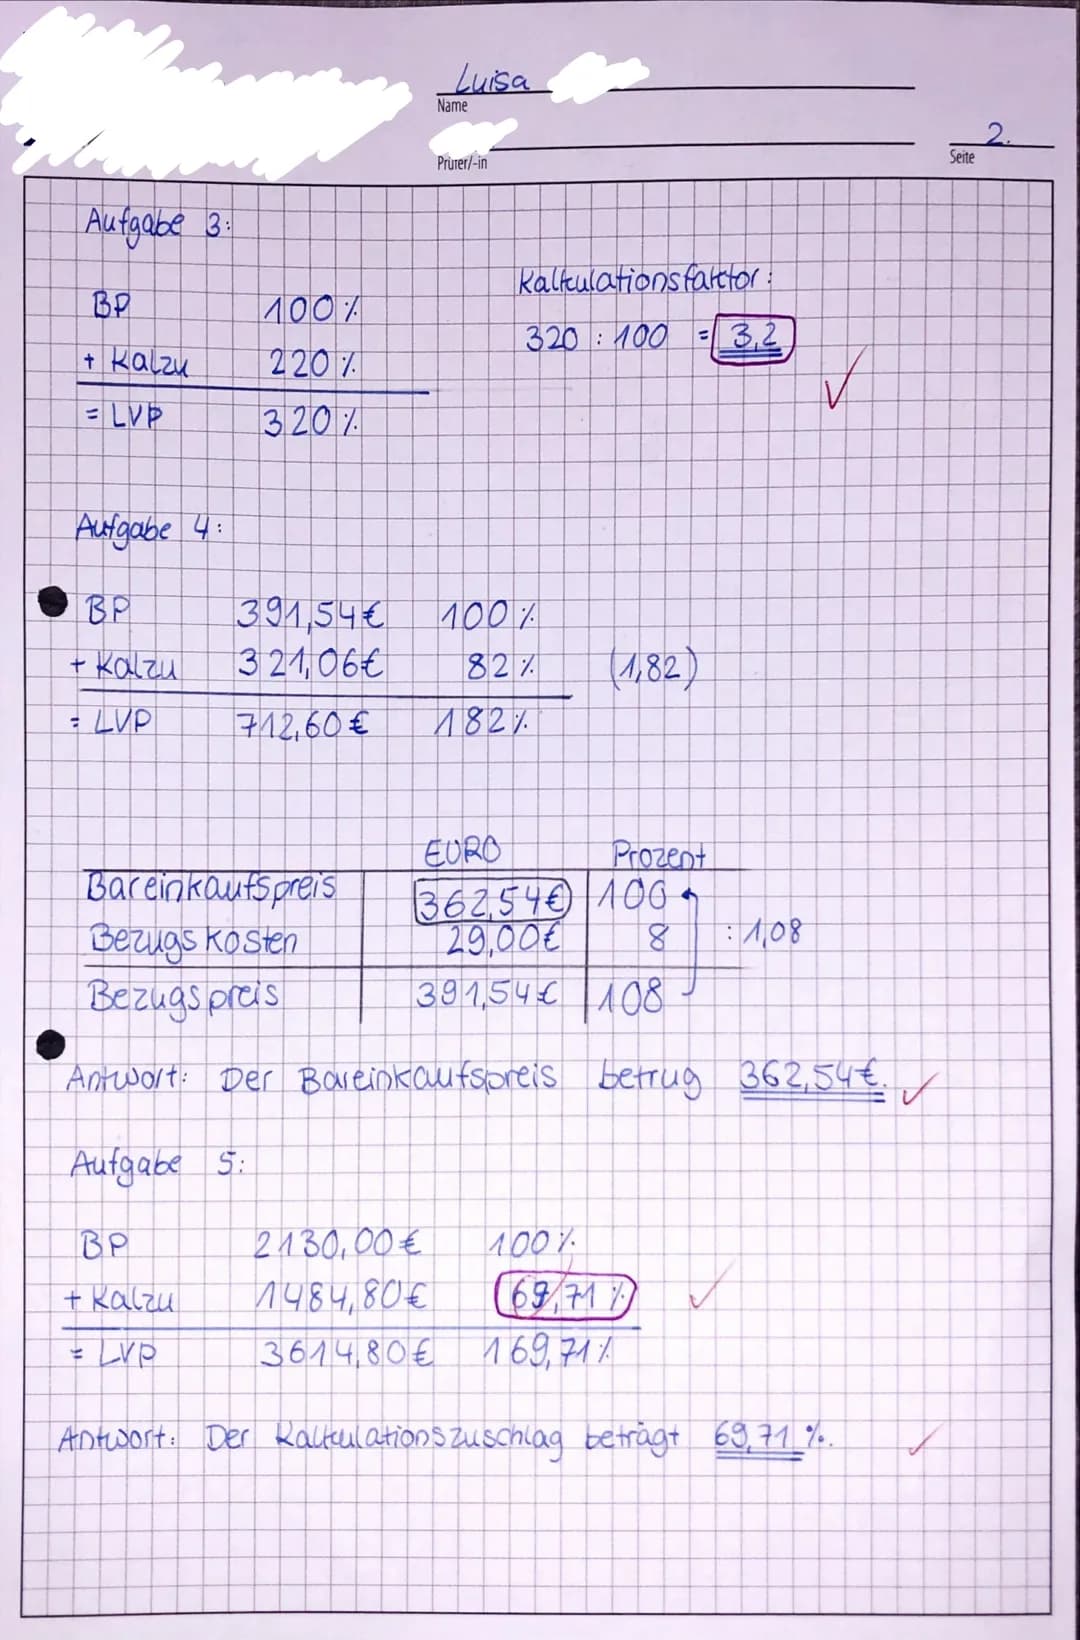 Luisa
Name
Prüfer/-in
2.
Seite
Aufgabe 3:
Kalkulationsfaktor:
BP 100 %
320 : 100 = 3,2
+ Kalzu 220 %
= LVP 320 %
Aufgabe 4:
BP 391,54€ 100 %
+ Kalzu 321,06€ 82 % (1,82)
= LVP 712,60€ 182 %
EURO Prozent
Bareinkaufspreis 362,54€ 100
Bezugskosten 29,00€ 8 : 1,08
Bezugspreis 391,54€ 108
Antwort: Der Bareinkaufspreis betrug 362,54€.
Aufgabe 5:
BP 2130,00€ 100 %
+ Kalzu 1484,80€ 69,71 %
= LVP 3614,80€ 169,71 %
Antwort: Der Kalkulationszuschlag beträgt 69,71 %.